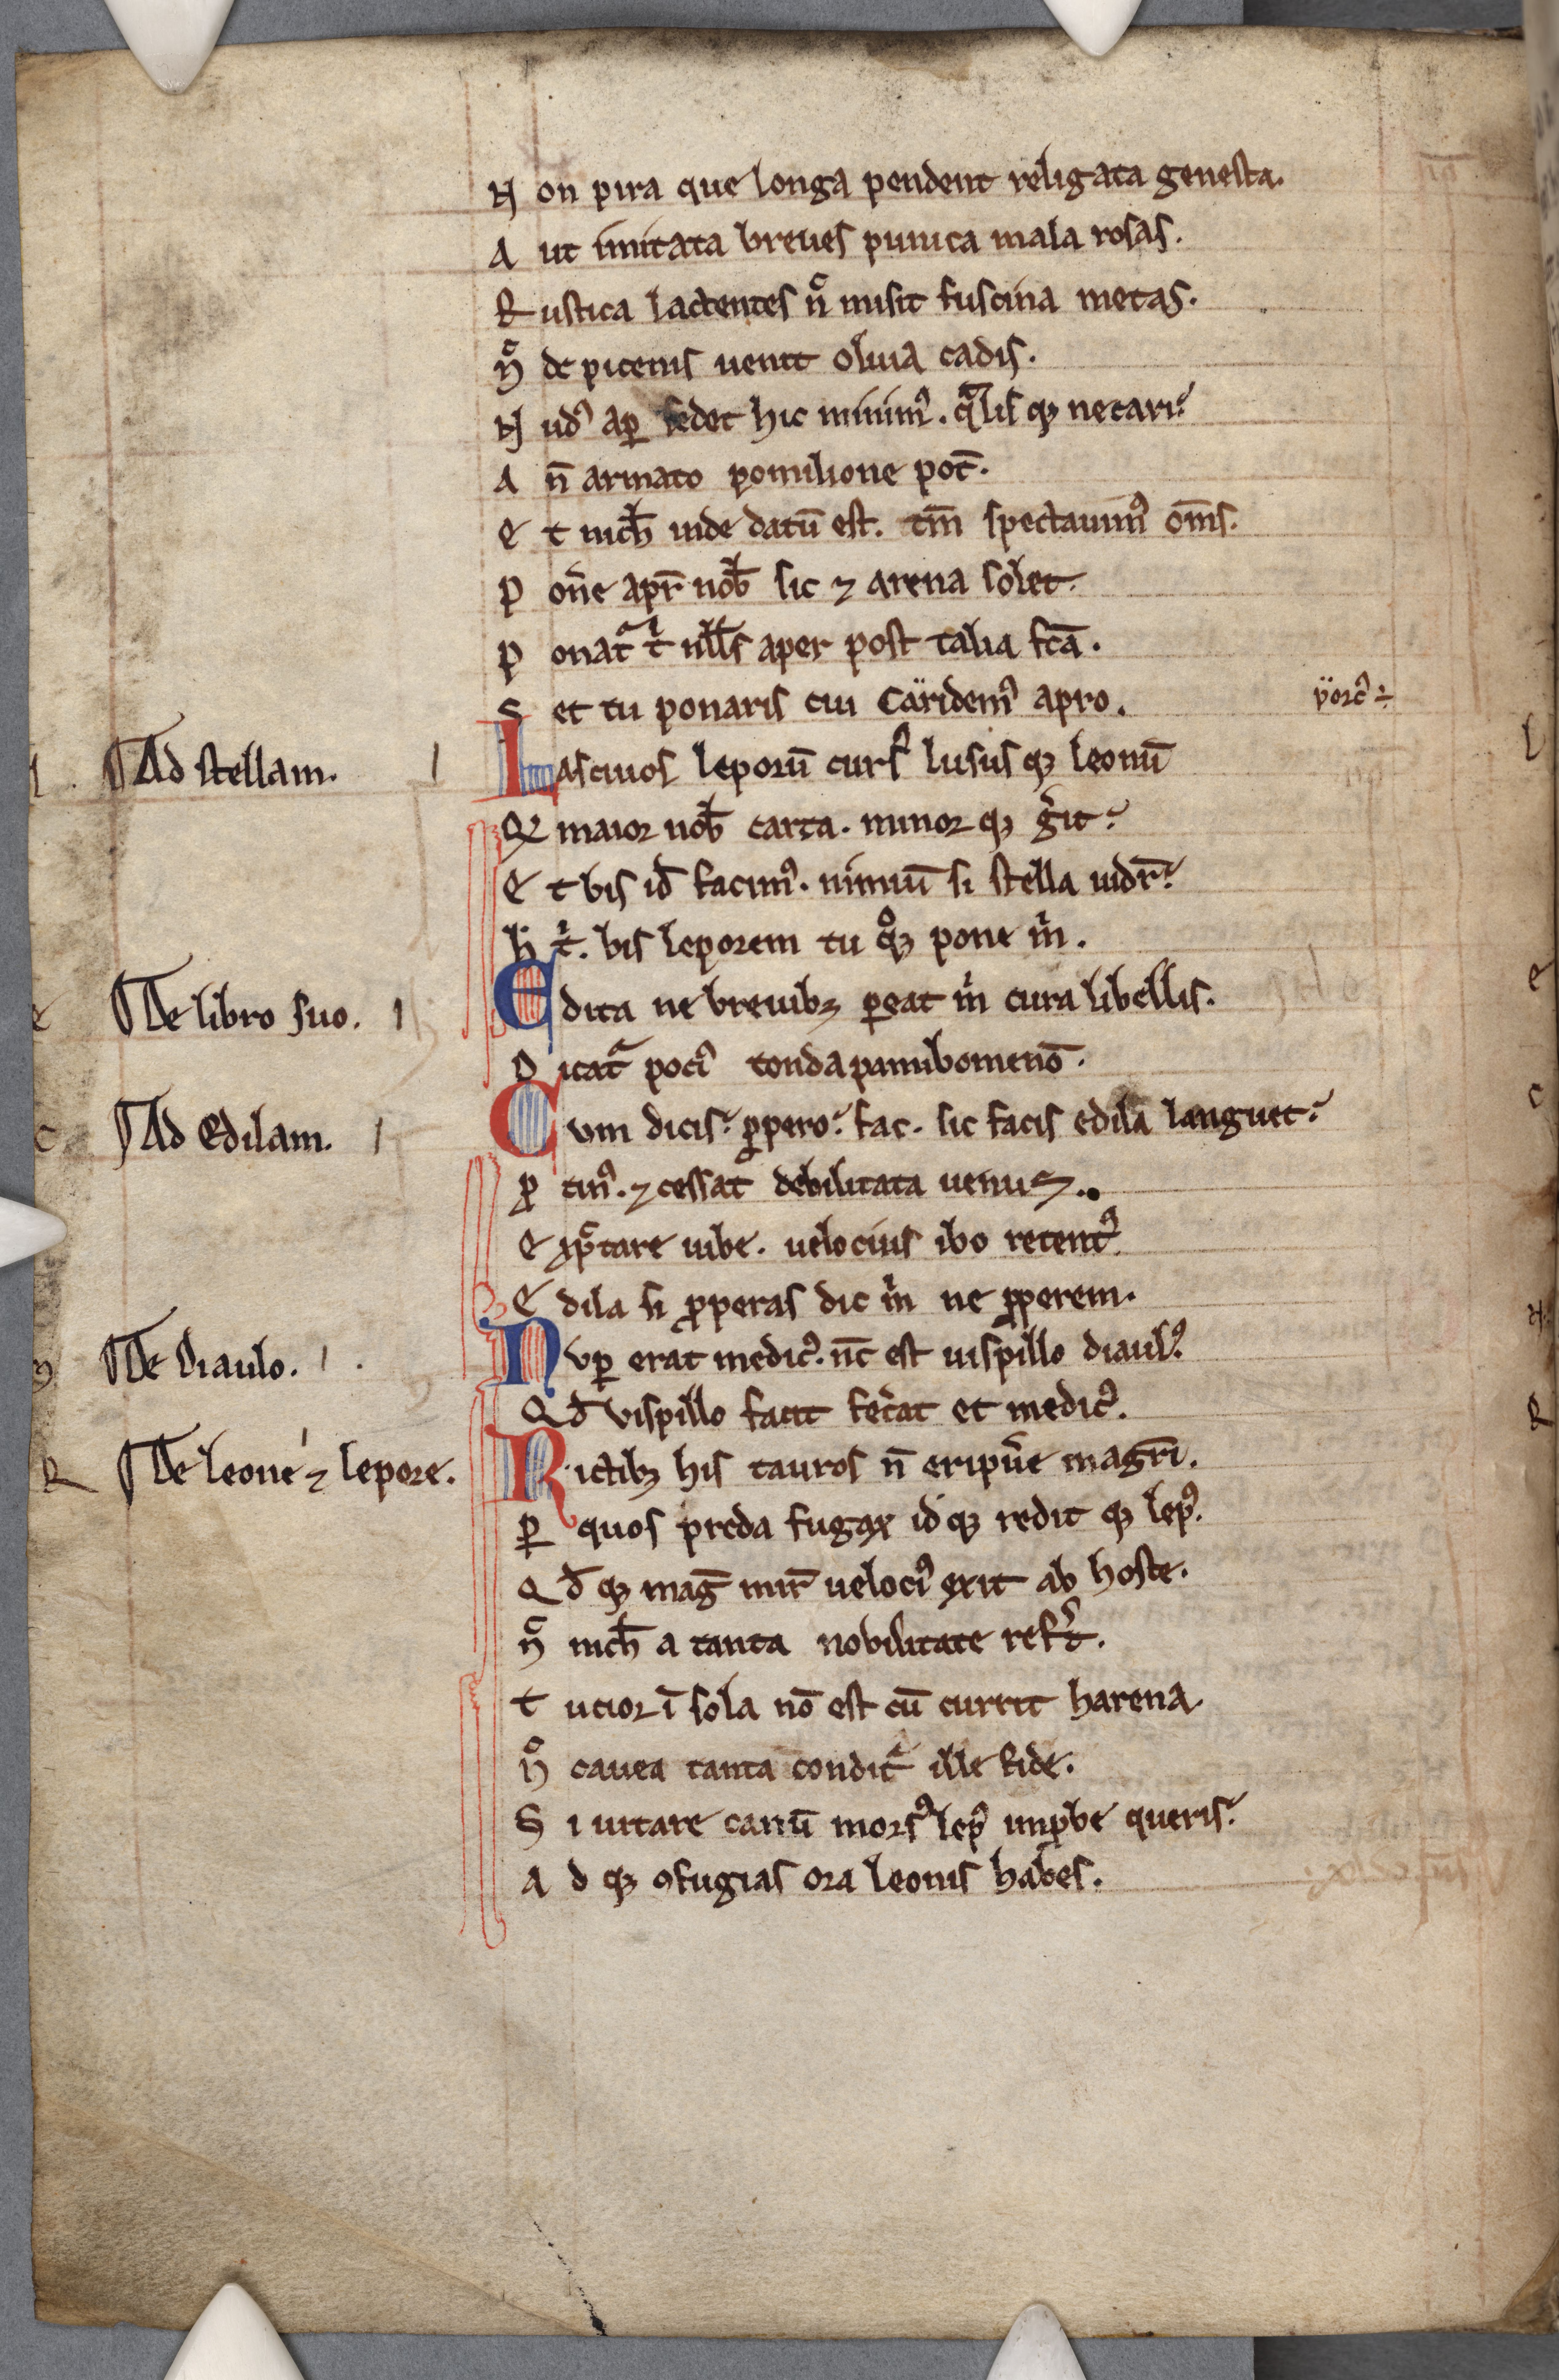 N on pira que longa pendent religata genesta.
A ut imitata breues punica mala rosas.
R ustica lactentes n̊ misit fuscina metas.
N̄ de picenis uenit oliua cadis.
N ud᷒ aꝑ sedet hic minim᷒. q̄lisꝙ necari.
A n̄ armato pomilione pot̄.
E t nich̄ inde datū est. tm̄ spectauim᷒ om̄s.
P on̄e apr̄ nob̄ sic ⁊ arena solet.
P onat᷑ t̄ nll̄s aper post talia fcā.
S et tu ponaris cui Caridem᷒ apro. porc᷒ ÷
¶ Ad stellam. Lasciuos leporū curs᷒ lususꝙ leonū
Q̄ maior nob̄ carta. minorꝙ ḡit.
E t bis id̄ facim᷒. nimiū si stella uidr̄.
H t̄. bis leporem tu q̊ꝙ pone m̄.
¶ De libro suo. Edita ne breuibꝫ ꝑeat m̄ cura libellis.
D icat᷑ poci᷒ tondapamibomenō.
¶ Ad Edilam. Cum dicis. ꝓpero. fac. sic facis edila languet.
P̄ tin᷒. ⁊ cessat debilitata uenus.
E xp̄tare iube. uelocius ibo retent᷒.
E dila si ꝓperas dic m̄ ne ꝓperem.
¶ De Diaulo. Nuꝑ erat medic᷒. nc̄ est uispillo diaul᷒.
Qd̄ vispillo facit fec̄at et medic᷒.
¶ De leone ⁊ lepore. Rictibꝫ his tauros n̄ eripūe magrī.
Ꝑ quos preda fugax idꝙ reditꝙ lep᷒.
Qd̄ꝙ maḡ mir̄ ueloci᷒ exit ab hoste.
N̄ nich̄ a tanta nobilitate reft̄.
T ucior ī sola nō est cū currit harena.
N̊ cauea tanta condit᷑ ille fide.
S i uitare canū mors᷒ lep᷒ inꝓbe queris.
A d ꝙ ꝯfugias ora leonis habes.